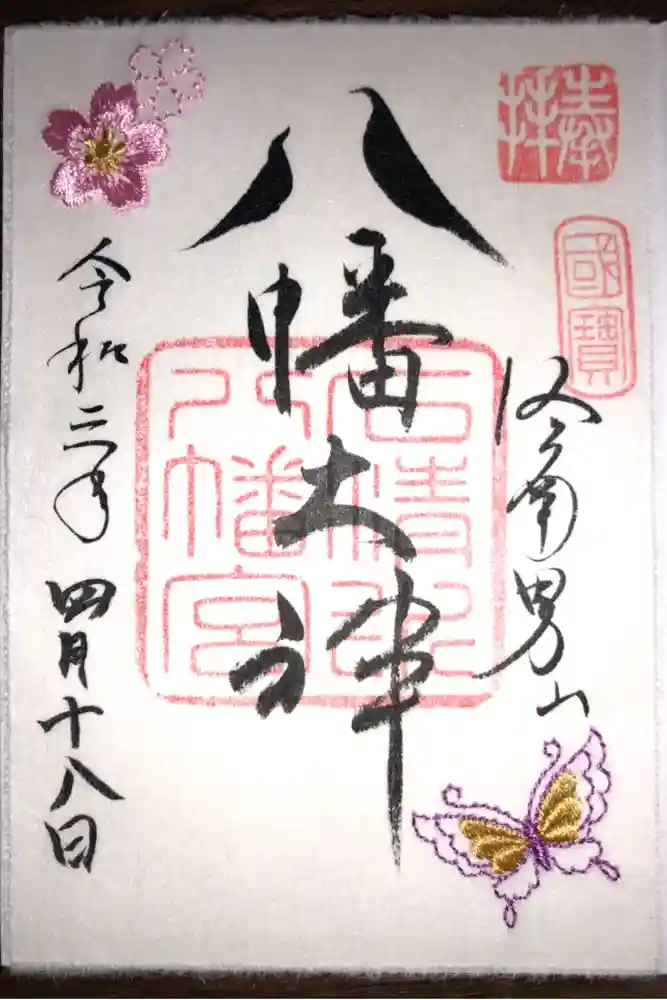 奉拝
國寶
洛南男山
八幡大神
石清水
八幡宮
令和三年四月十八日